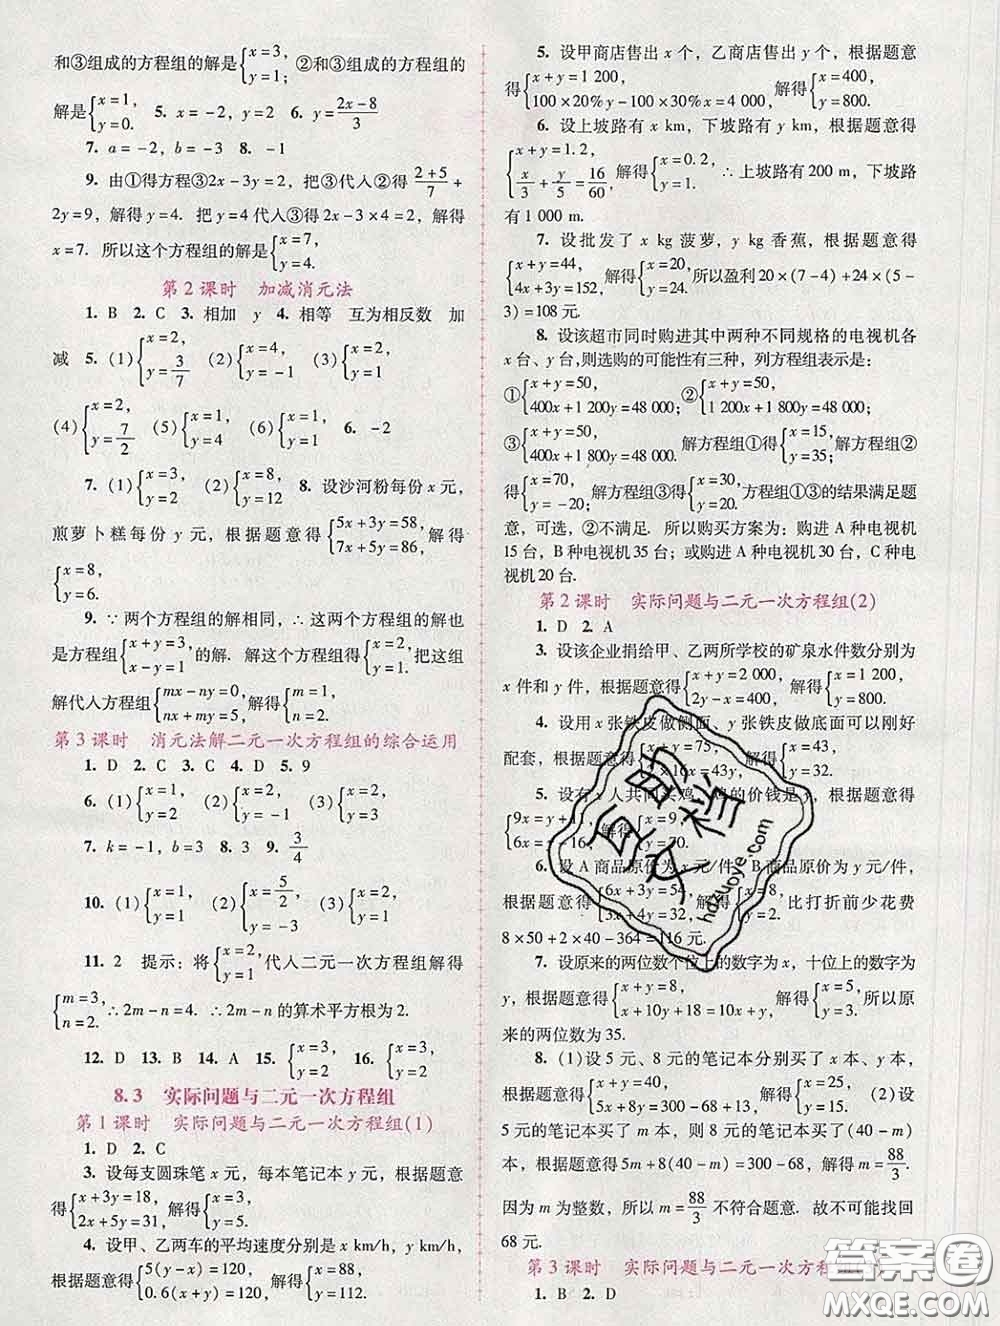 和③组成的方程组的解是{x=3, y=1; ②和③组成的方程组的
解是{x=1, y=0. 5. x=-2, y=2 6. y=(2x-8)/3
7. a=-2, b=-3 8. -1
9. 由①得方程③2x-3y=2, 把③代人②得 (2+5)/7 +
2y=9, 解得 y=4. 把 y=4 代人③得 2x-3×4=2, 解得
x=7. 所以这个方程组的解是{x=7, y=4.
第 2 课时 加减消元法
1. B 2. C 3. 相加 y 4. 相等 互为相反数 加
减 5. (1){x=2, y=3/7 (2){x=4, y=-1 (3){x=2, y=1
(4){x=2, y=7/2 (5){x=1, y=4 (6){x=1, y=1 6. -2
7. (1){x=3, y=2 (2){x=8, y=12 8. 设沙河粉每份 x 元,
煎萝卜糕每份 y 元, 根据题意得{5x+3y=58, 7x+5y=86, 解得
{x=8, y=6.
9. ∵ 两个方程组的解相同, ∴ 这两个方程组的解也
是方程组{x+y=3, x-y=1 的解. 解这个方程组得{x=2, y=1, 把这组
解代人方程组{mx-ny=0, nx+my=5, 解得{m=1, n=2.
第 3 课时 消元法解二元一次方程组的综合运用
1. D 2. C 3. C 4. D 5. 9
6. (1){x=1, y=2 (2){x=2, y=1 (3){x=2, y=1
7. k=-1, b=3 8. 3 9. 3/4
10. (1){x=1, y=1 (2){x=5/2, y=-3 (3){x=2, y=1
11. 2 提示: 将{x=2, y=1 代人二元一次方程组解得
{m=3, n=2. ∴ 2m-n=4. ∴ 2m-n 的算术平方根为 2.
12. D 13. B 14. A 15. {x=3, y=2 16. {x=3, y=2
8. 3 实际问题与二元一次方程组
第 1 课时 实际问题与二元一次方程组(1)
1. D 2. C
3. 设每支圆珠笔 x 元, 每本笔记本 y 元, 根据题意
得{x+3y=18, 2x+5y=31, 解得{x=3, y=5.
4. 设甲、乙两车的平均速度分别是 x km/h, y km/h,
根据题意得{5(y-x)=120, 0.6(x+y)=120, 解得{x=88, y=112.
5. 设甲商店售出 x 个, 乙商店售出 y 个, 根据题意
得{x+y=1 200, 100×20%y-100×30%x=4 000, 解得{x=400, y=800.
6. 设上坡路有 x km, 下坡路有 y km, 根据题意得
{x+y=1.2, x/3+y/5=16/60, 解得{x=0.2, y=1. ∴ 上坡路有 200 m, 下坡路
有 1 000 m.
7. 设批发了 x kg 菠萝, y kg 香蕉, 根据题意得
{x+y=44, 4x+3y=152, 解得{x=20, y=24. 所以盈利 20×(7-4)+24×(5-
3)=108 元.
8. 设该超市同时购进其中两种不同规格的电视机各
x 台、y 台,则选购的可能性有三种, 列方程组表示是:
①{x+y=50, 400x+1 200y=48 000; ②{x+y=50, 1 200x+1 800y=48 000;
③{x+y=50, 400x+1 800y=48 000. 解方程组①得{x=15, y=35; 解方程组②
得{x=70, y=-20; 解方程组③得{x=30, y=20. 方程组①③的结果满足题
意, 可选, ②不满足. 所以购买方案为: 购进 A 种电视机
15 台, B 种电视机 35 台; 或购进 A 种电视机 30 台, C 种电
视机 20 台.
第 2 课时 实际问题与二元一次方程组(2)
1. D 2. A
3. 设该企业捐给甲、乙两所学校的矿泉水件数分别为
x 件和 y 件, 根据题意得{x+y=2 000, 2y-x=400, 解得{x=1 200, y=800.
4. 设用 x 张铁皮做侧面、y 张铁皮做底面可以刚好
配套, 根据题意得{x+y=75, 2×16x=43y, 解得{x=43, y=32.
5. 设有 x 人共同买鸡, 鸡的价钱是 y, 根据题意得
{9x=y+11, 6x=y-16, 解得{x=9, y=70.
6. 设 A 商品原价为 x 元/件, B 商品原价为 y 元/件,
根据题意得{6x+3y=54, 3x+4y=32, 解得{x=8, y=2. 比打折前少花费
8×50+2×40-364=116 元.
7. 设原来的两位数个位上的数字为 x, 十位上的数字为
y, 根据题意得{x+y=8, x+10y+18=10x+y, 解得{x=5, y=3. 所以原
来的两位数为 35.
8. (1)设 5 元、8 元的笔记本分别买了 x 本、y 本, 根
据题意得{x+y=40, 5x+8y=300-68+13, 解得{x=25, y=15. (2)设
5 元的笔记本买了 m 本, 则 8 元的笔记本买了(40-m)
本, 根据题意得 5m+8(40-m)=300-68, 解得 m=88/3.
因为 m 为整数, 所以 m=88/3 不符合题意. 故不可能找回
68 元.
第 3 课时 实际问题与二元一次方程组
1. B 2. D
作业
hdzuoye.com
答案圈
MXQE.COM